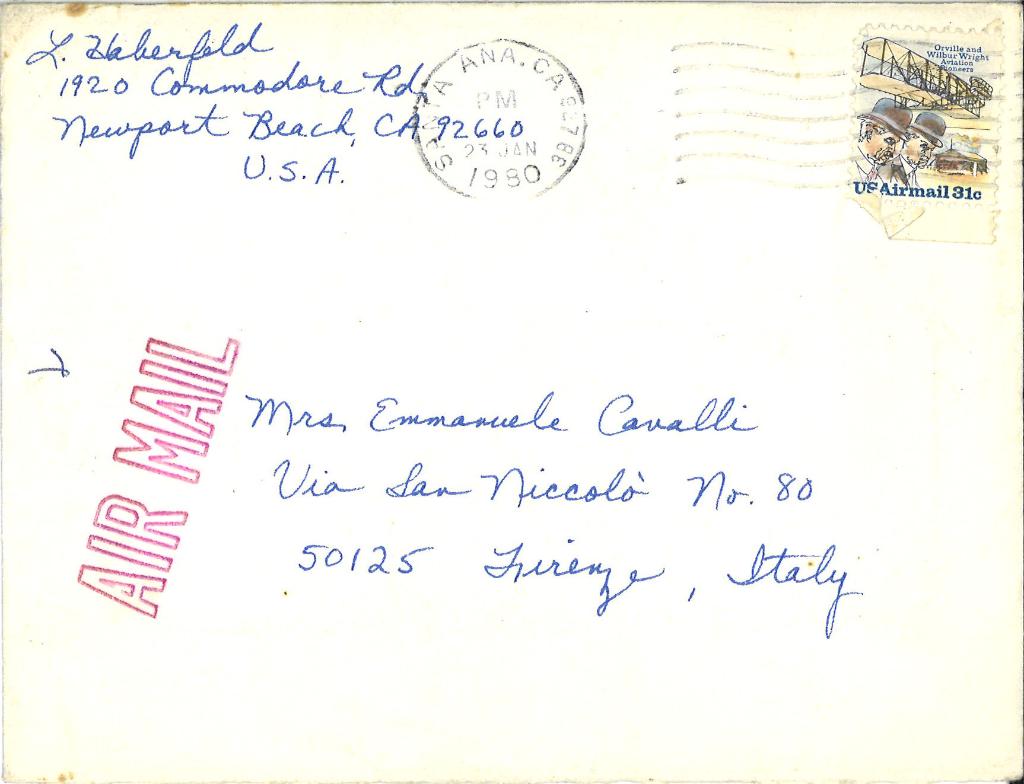 L. Haberfeld
1920 Commodore Rd.
Newport Beach, CA 92660
U.S.A.
SANTA ANA. CA
PM
23 JAN
1980
Orville and
Wilbur Wright
Aviation
Pioneers
US Airmail 31c
AIR MAIL
Mrs. Emmanuele Cavalli
Via San Niccolò No. 80
50125 Firenze, Italy